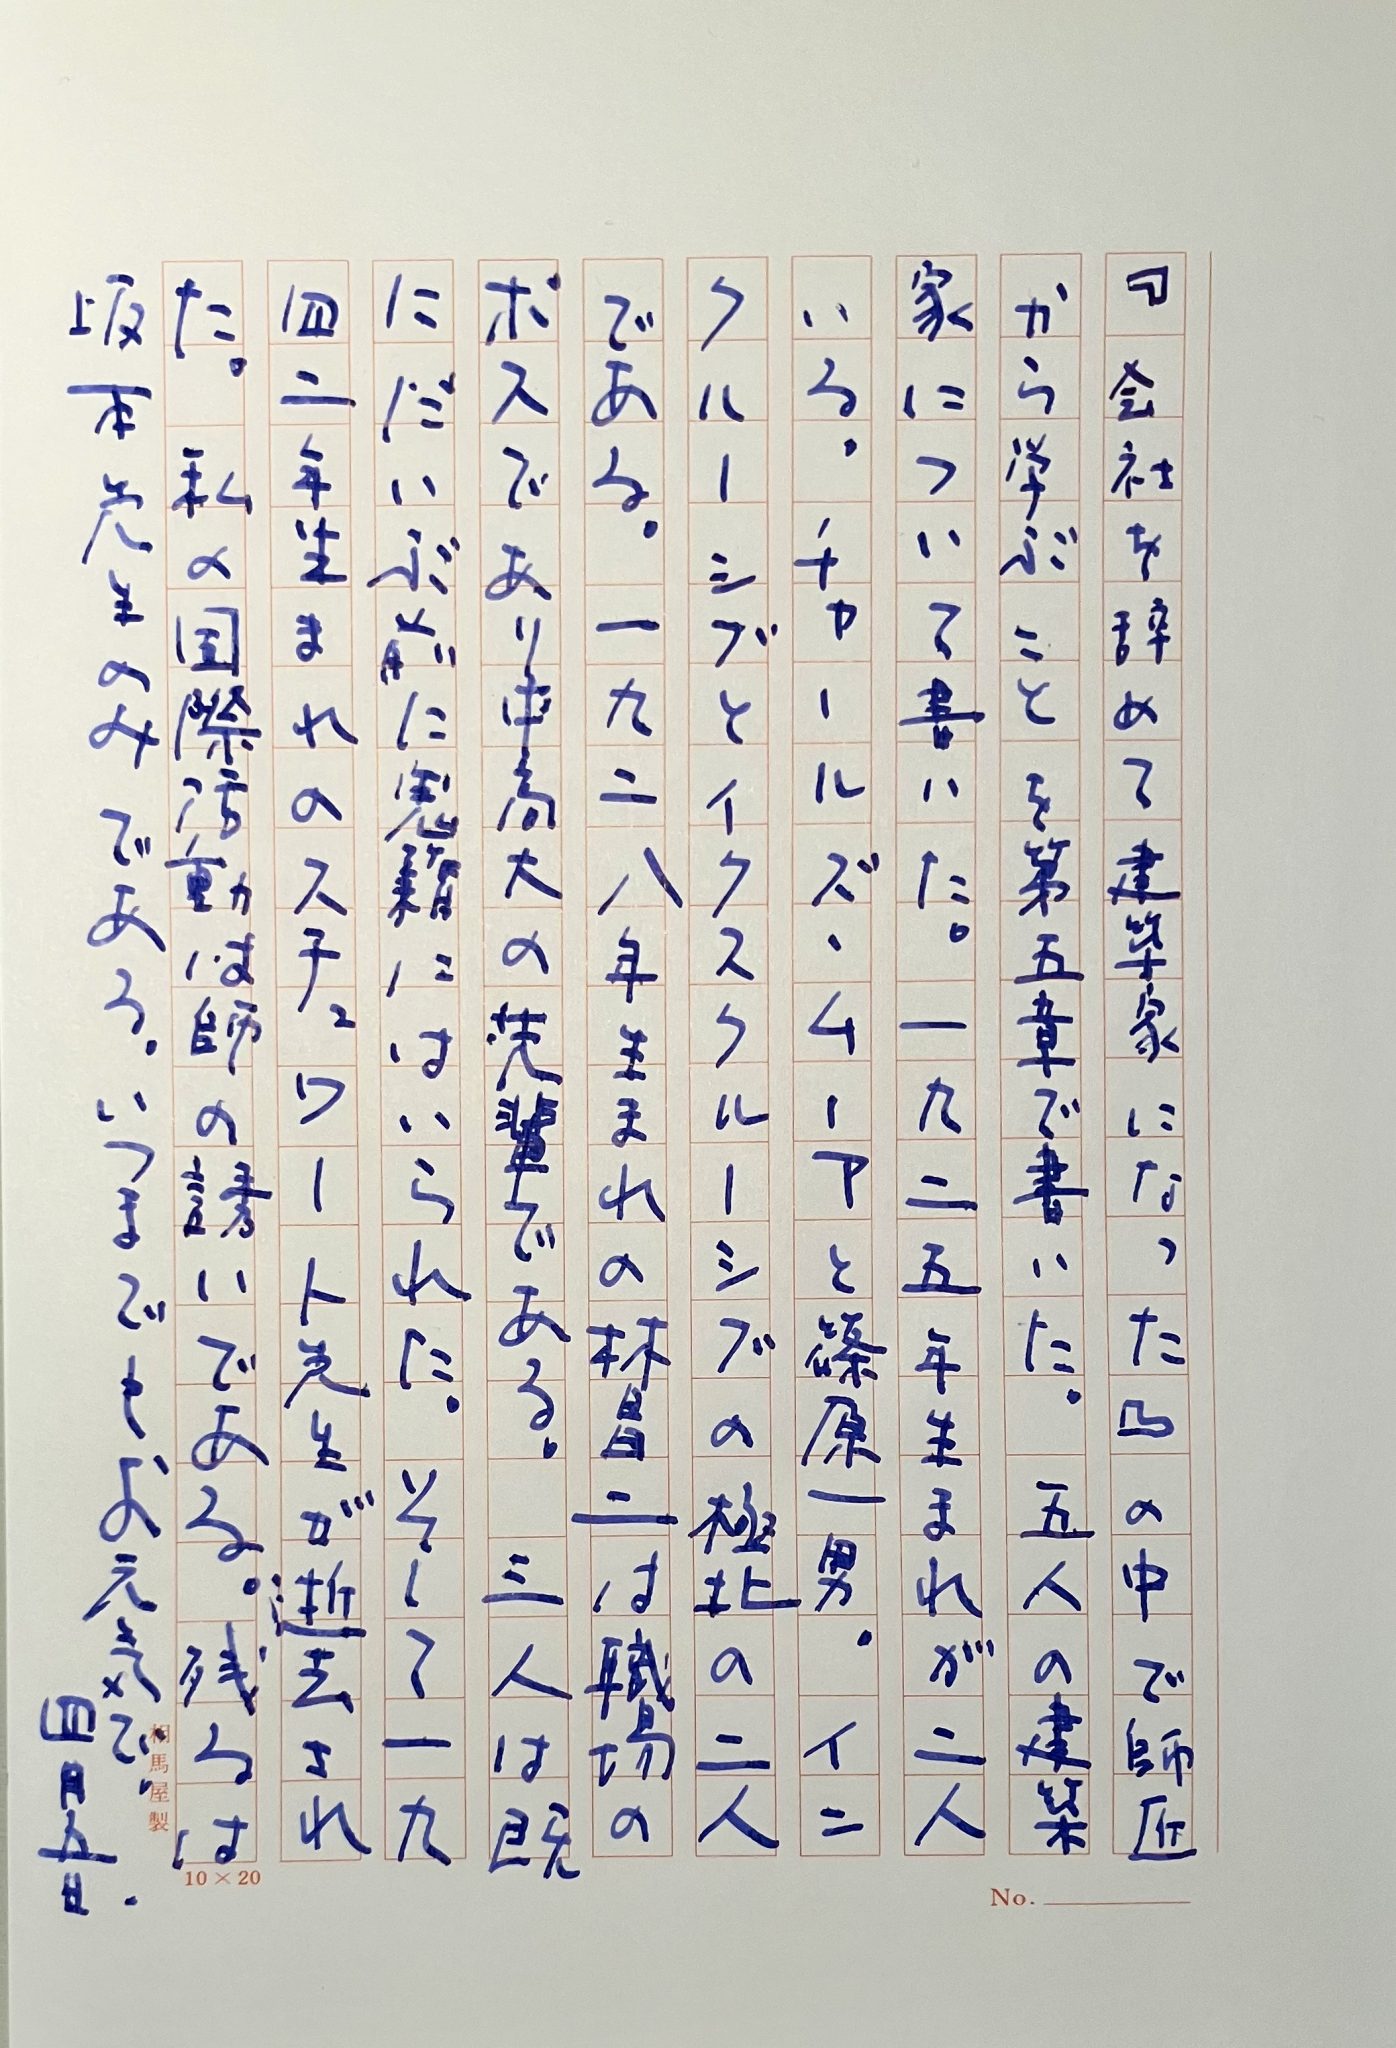 『会社を辞めて建築家になった』の中で師匠
から学ぶことを第五章で書いた。五人の建築
家について書いた。一九二五年生まれが二人
いる。チャールズ・ムーアと篠原一男。イン
クルーシブとイクスクルーシブの極北の二人
である。一九二八年生まれの林昌二は職場の
ボスであり中高大の先輩である。三人は既
にだいぶ前に鬼籍にはいられた。そして一九
四二年生まれのスチュワート先生が逝去され
た。私の国際活動は師の誘いである。残るは
坂本先生のみである。いつまでもお元気で。
四月五日。
相馬屋製
10×20
No.